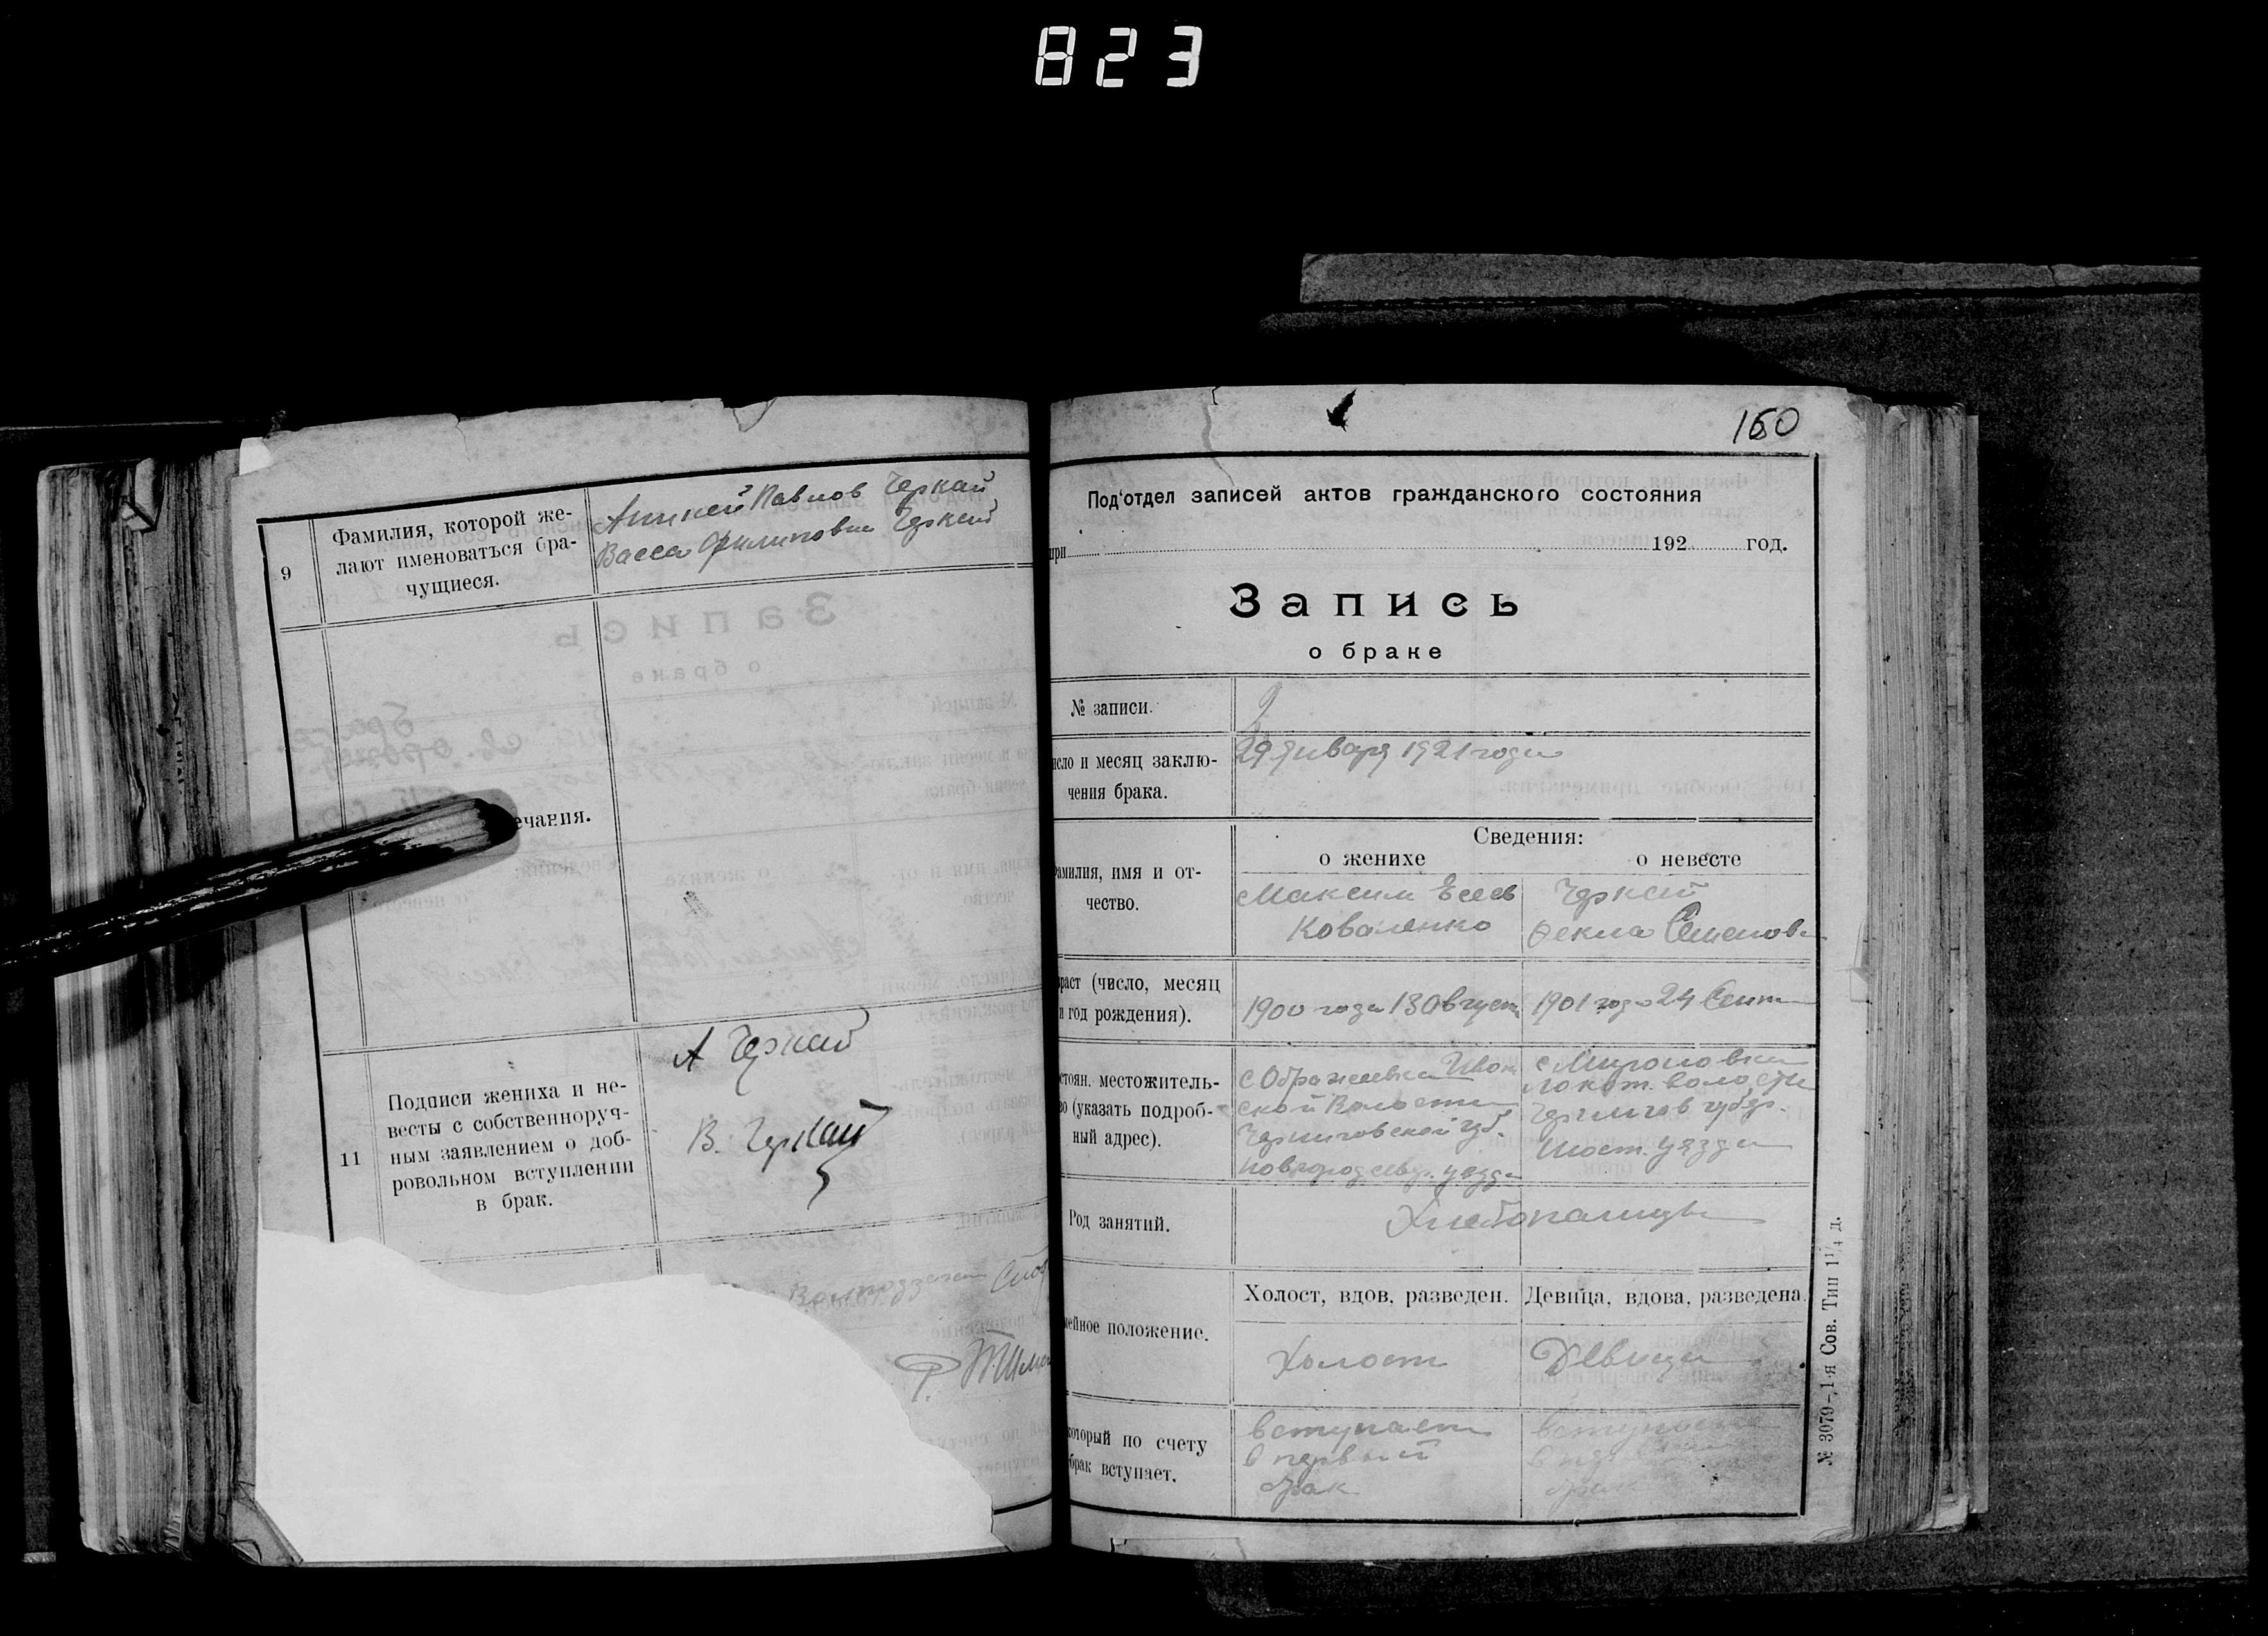 823
9
Фамилия, которой же-
лают именоваться бра-
чущиеся.
Павлов Черкай
Васса Филиповна Черкай
ечания.
11
Подписи жениха и не-
весты с собственноруч-
ным заявлением о доб-
ровольном вступлении
в брак.
А Черкай
В. Черкай
160
Под'отдел записей актов гражданского состояния
при 192 год.
Запись
о браке
№ записи.
2
исло и месяц заклю-
чения брака.
29 Января 1921 года
Сведения:
о женихе
о невесте
амилия, имя и от-
чество.
Максим Евсеев
Коваленко
Черкай
Фекла Семенова
раст (число, месяц
и год рождения).
1900 года 13 Августа
1901 года 24 Сент
стоян. местожитель-
во (указать подроб-
ный адрес).
с Ображеевка Ивот
ской Волости
Черниговской губ.
Новгородсевер. уезда
с Мироновка
Локот. волости
Чернигов губер.
Шост. уезда
Род занятий.
Хлебопашцы
ейное положение.
Холост, вдов, разведен.
Девица, вдова, разведена.
Холост
Девица
который по счету
брак вступает.
вступает
в первый
брак
вступает
в первый
брак
№ 3079-1-я Сов. Тип 1 1/4 д.